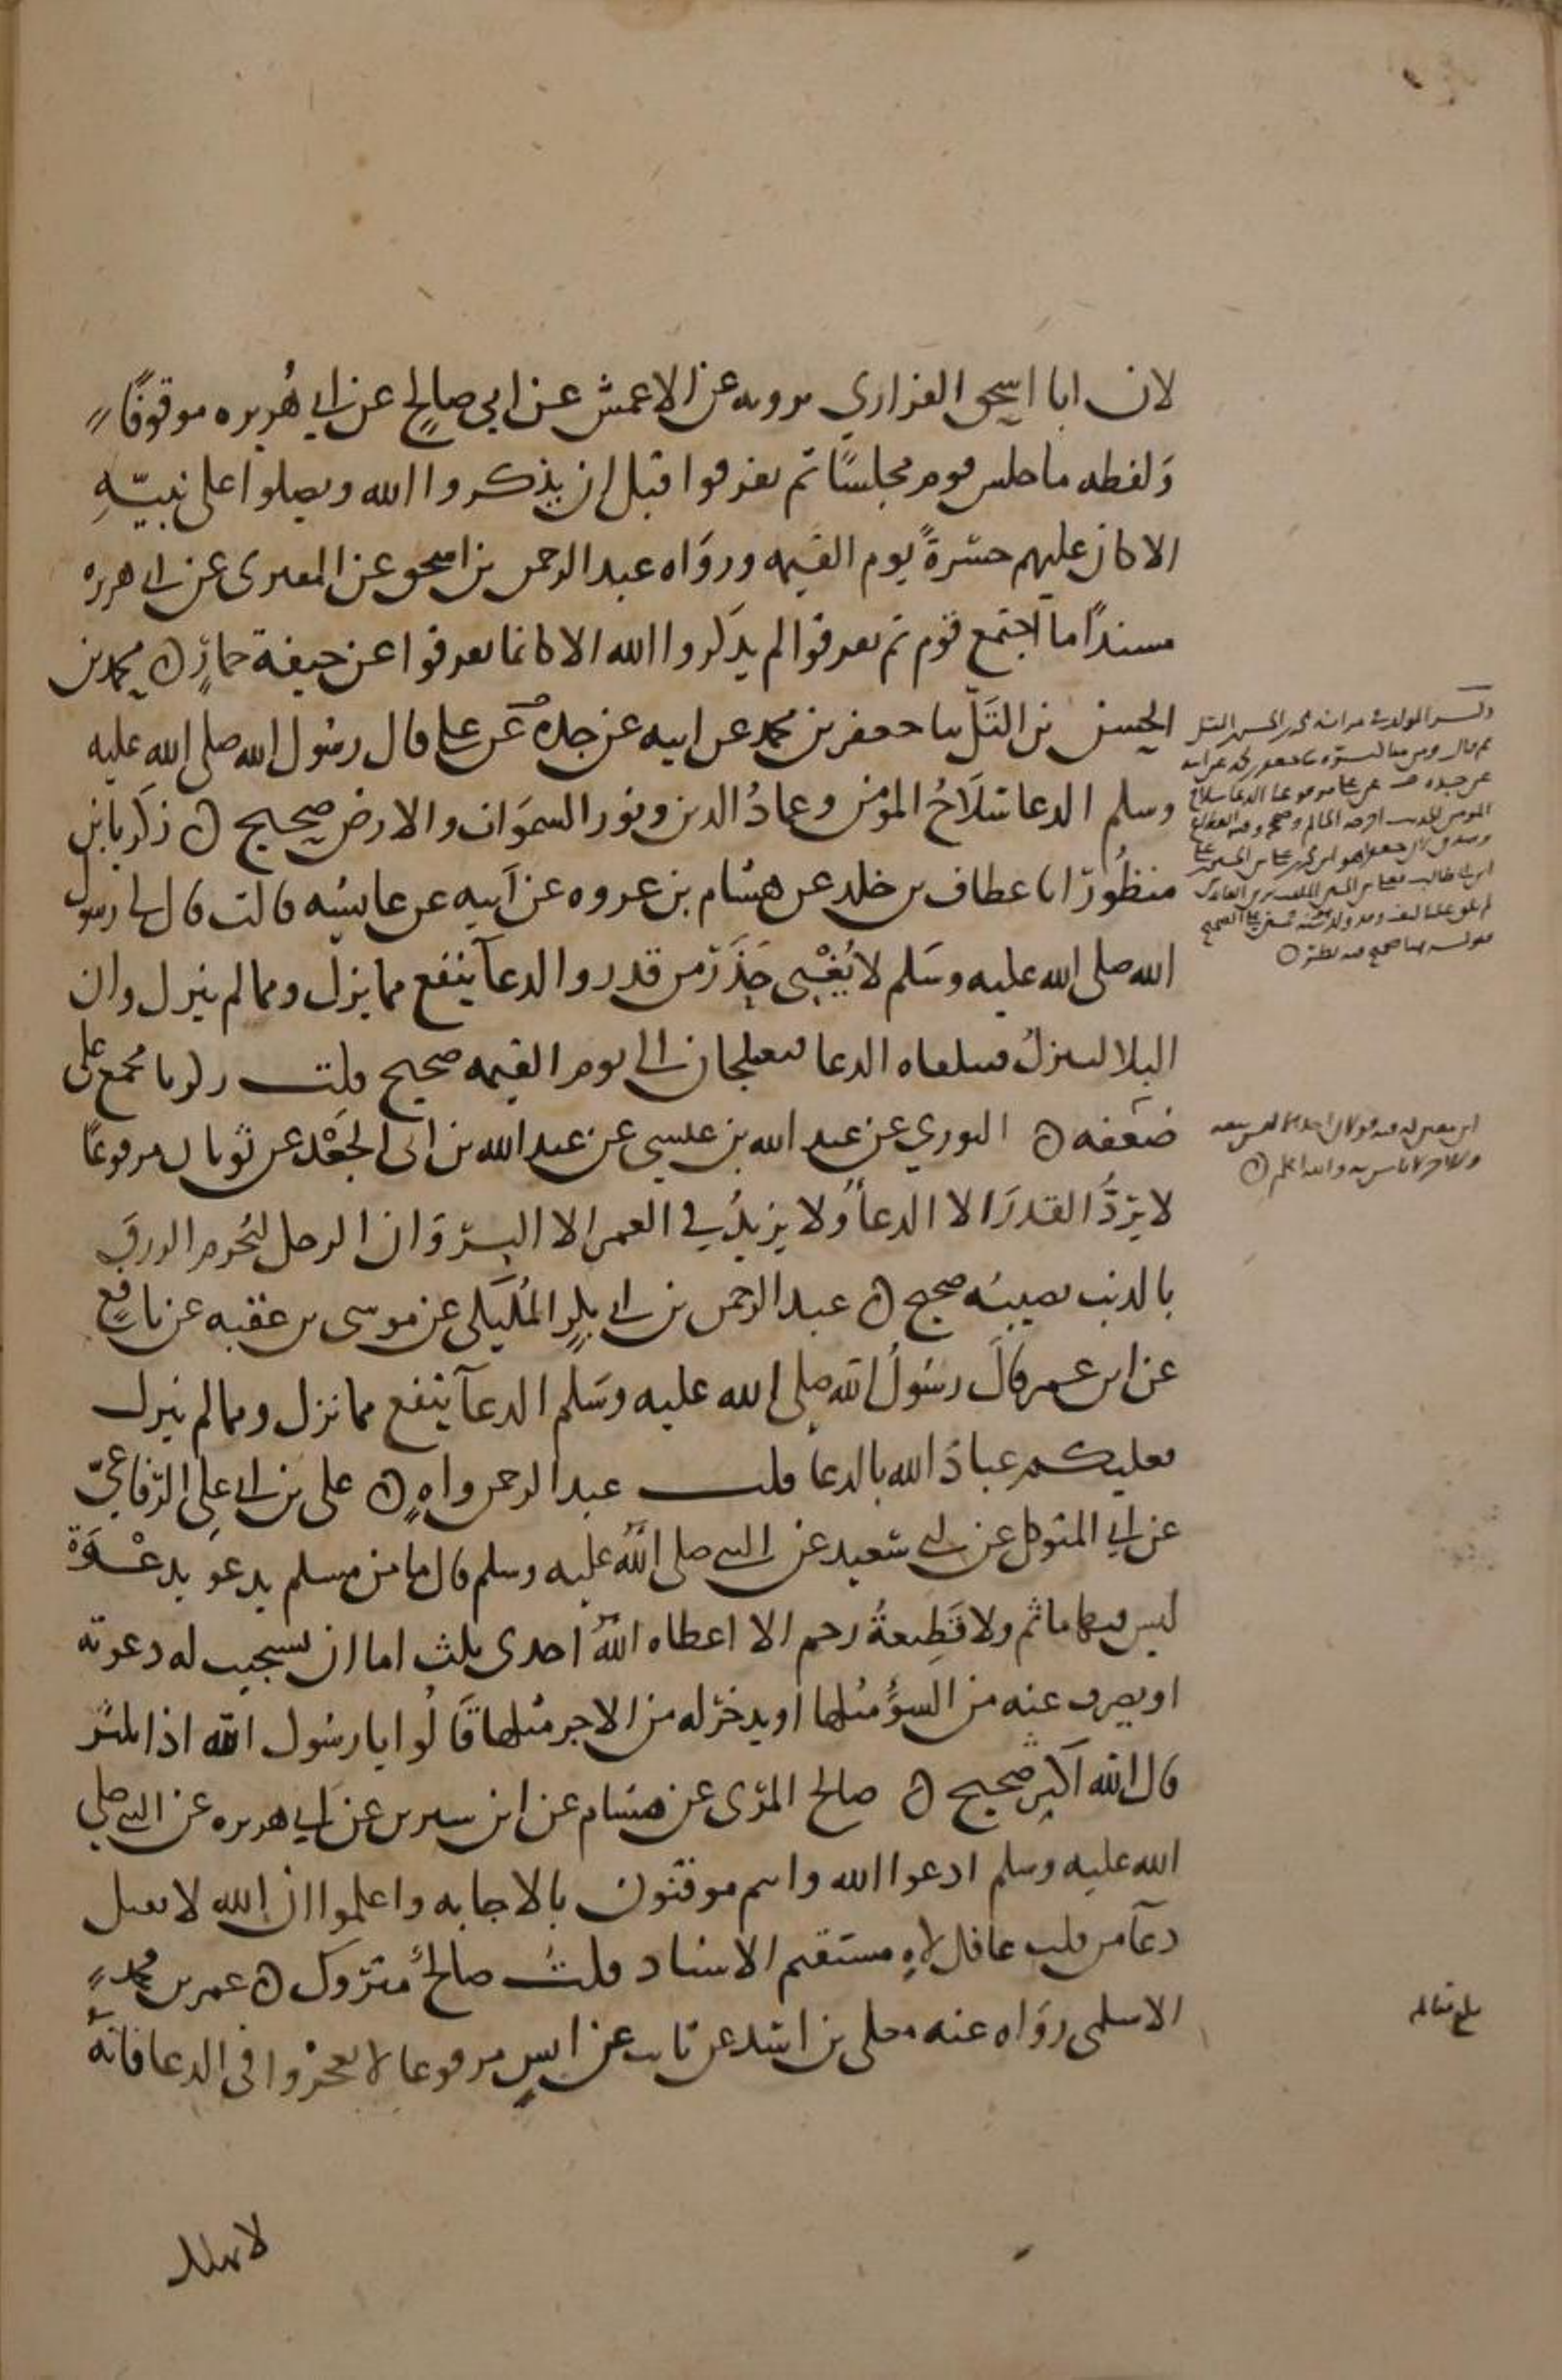 لان ابا اسحق الفزاري يرويه عن الاعمش عن ابي صالح عن ابي هُريره موقوفًا
وَلفظه ما جلس قوم مجلسًا ثم تفرقوا قبل ان يذكروا الله ويصلوا على نبيّهِ
الا كان عليهم حسْرةً يوم القيمه وروَاه عبد الرحمن بن اسحق عن المقبري عن ابي هريره
مسندًا ما اجتمع قوم ثم تفرقوا لم يذكروا الله الا كانما تفرقوا عن جيفة حمارٍ ه محمد بن
الحسن بن التَلّ ثنا جعفر بن محمد عن ابيه عن جده عن علي قال رسُول الله صلى الله عليه
وسلم الدعا سلَاحُ المؤمن وعمادُ الدين ونور السموَات والارض صحيح ه زكريا بن
منظُور انا عطاف بن خلد عن هشام بن عروه عن ابيه عن عايشه قالت قال لي رسول
الله صلى الله عليه وسَلم لا يُغْني حَذَر من قدر والدعآ ينفع مما نزل ومما لم ينزل وان
البلا لينزلُ فيلقاه الدعا فيعتلجان الى يوم القيمه صحيح قلت زكريا مجمع على
ضعفه ه الثوري عن عبد الله بن عيسى عن عبد الله بن ابي الجَعْد عن ثوبان مرفوعًا
لا يَردُّ القدرَ الا الدعآ ولا يزيدُ في العمر الا البرّ وَان الرجل ليُحرم الرزق
بالذنب يصيبُه صحيح ه عبد الرحمن بن ابي بكرٍ المُلَيكي عن موسى بن عقبه عن نافعٍ
عن ابن عمر قالَ رسُولُ الله صلى الله عليه وسَلم الدعآ ينفع مما نزل ومما لم ينزل
فعليكم عبادَ الله بالدعا قلت عبد الرحمن واهٍ ه على بن ابي علي الرّفاعيّ
عن ابي المتوكل عن ابي سَعيد عن النبي صلى اللهُ عليه وسلم قال ما من مسلم يدعو بدعْوَة
ليس فيها ماثم ولا قَطِيعةُ رحم الا اعطاه اللهُ احدى ثلث اما ان يستجيب له دعوته
او يصرف عنه من السوُء مثلها او يدخرَ له من الاجر مثلها قَالُوا يا رسُول الله اذا نكثر
قال الله اكبر صحيح ه صالح المرّى عن هشام عن ابن سيرين عن ابي هريره عن النبي صلى
الله عليه وسلم ادعوا الله وانتم موقنون بالاجابه واعلموا ان الله لا يقبل
دعآ من قلب غافل لاهٍ مستقيم الاسناد قلتُ صالحٌ متروك ه عمر بن محمدٍ
الاسلمي روَاه عنه معلى بن اسد عن ثابت عن انسٍ مرفوعا لا تعجزوا في الدعا فانهُ
لا يهلك
عن جده عن علي مرفوعا الدعا سلاح
المومن الحديث
والله اعلم ه
بلغ مقابله